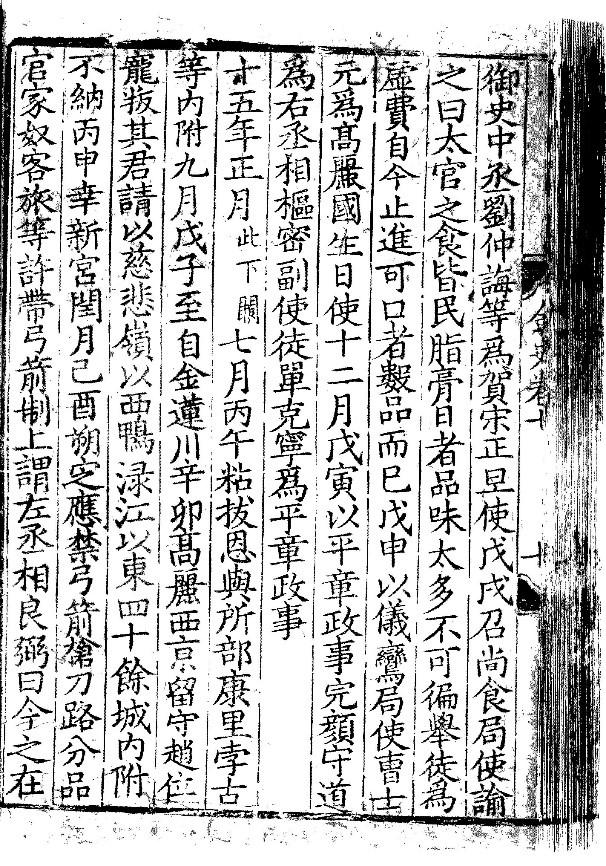 御史中丞劉仲誨等爲賀宋正旦使戊戌召尚食局使諭
之曰太官之食皆民脂膏日者品味太多不可徧舉徒爲
虛費自今止進可口者數品而已戊申以儀鸞局使曹士
元爲高麗國生日使十二月戊寅以平章政事完顔守道
爲右丞相樞密副使徒單克寧爲平章政事
十五年正月此下闕七月丙午粘拔恩與所部康里孛古
等内附九月戊子至自金蓮川辛卯高麗西京留守趙位
寵叛其君請以慈悲嶺以西鴨渌江以東四十餘城内附
不納丙申幸新宮閏月己酉朔定應禁弓箭槍刀路分品
官家奴客旅等許帶弓箭制上謂左丞相良弼曰今之在
金史卷七
十